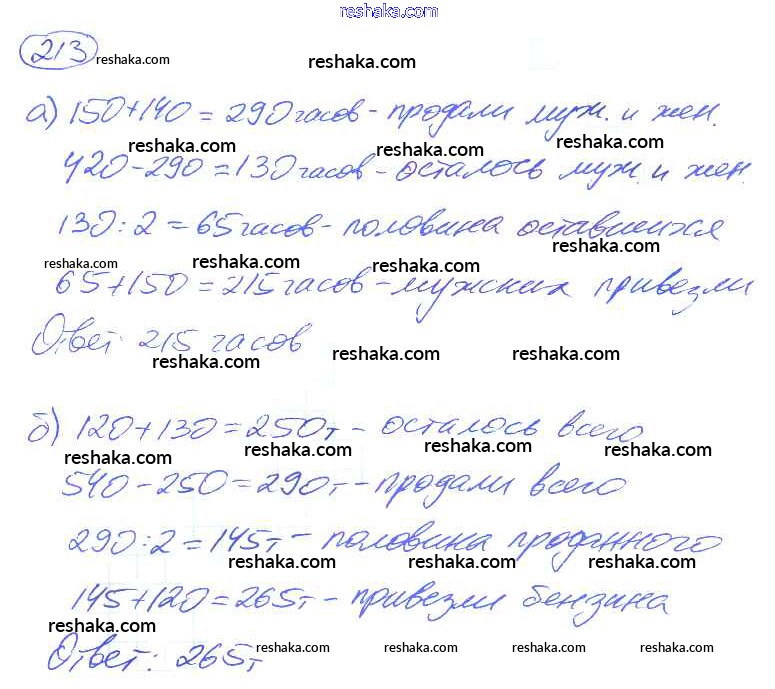 reshaka.com
213 reshaka.com reshaka.com
а) 150+140 = 290 часов - продали муж. и жен.
reshaka.com reshaka.com reshaka.com
420-290 = 130 часов - осталось муж. и жен.
130:2 = 65 часов - половина оставшихся
reshaka.com reshaka.com reshaka.com reshaka.com
65+150 = 215 часов - мужских привезли
Ответ: 215 часов
reshaka.com reshaka.com reshaka.com
б) 120+130 = 250т - осталось всего
reshaka.com reshaka.com reshaka.com reshaka.com
540-250 = 290т - продали всего
290:2 = 145т - половина проданного
reshaka.com reshaka.com reshaka.com reshaka.com
145+120 = 265т - привезли бензина
reshaka.com
Ответ: 265т
reshaka.com reshaka.com reshaka.com reshaka.com